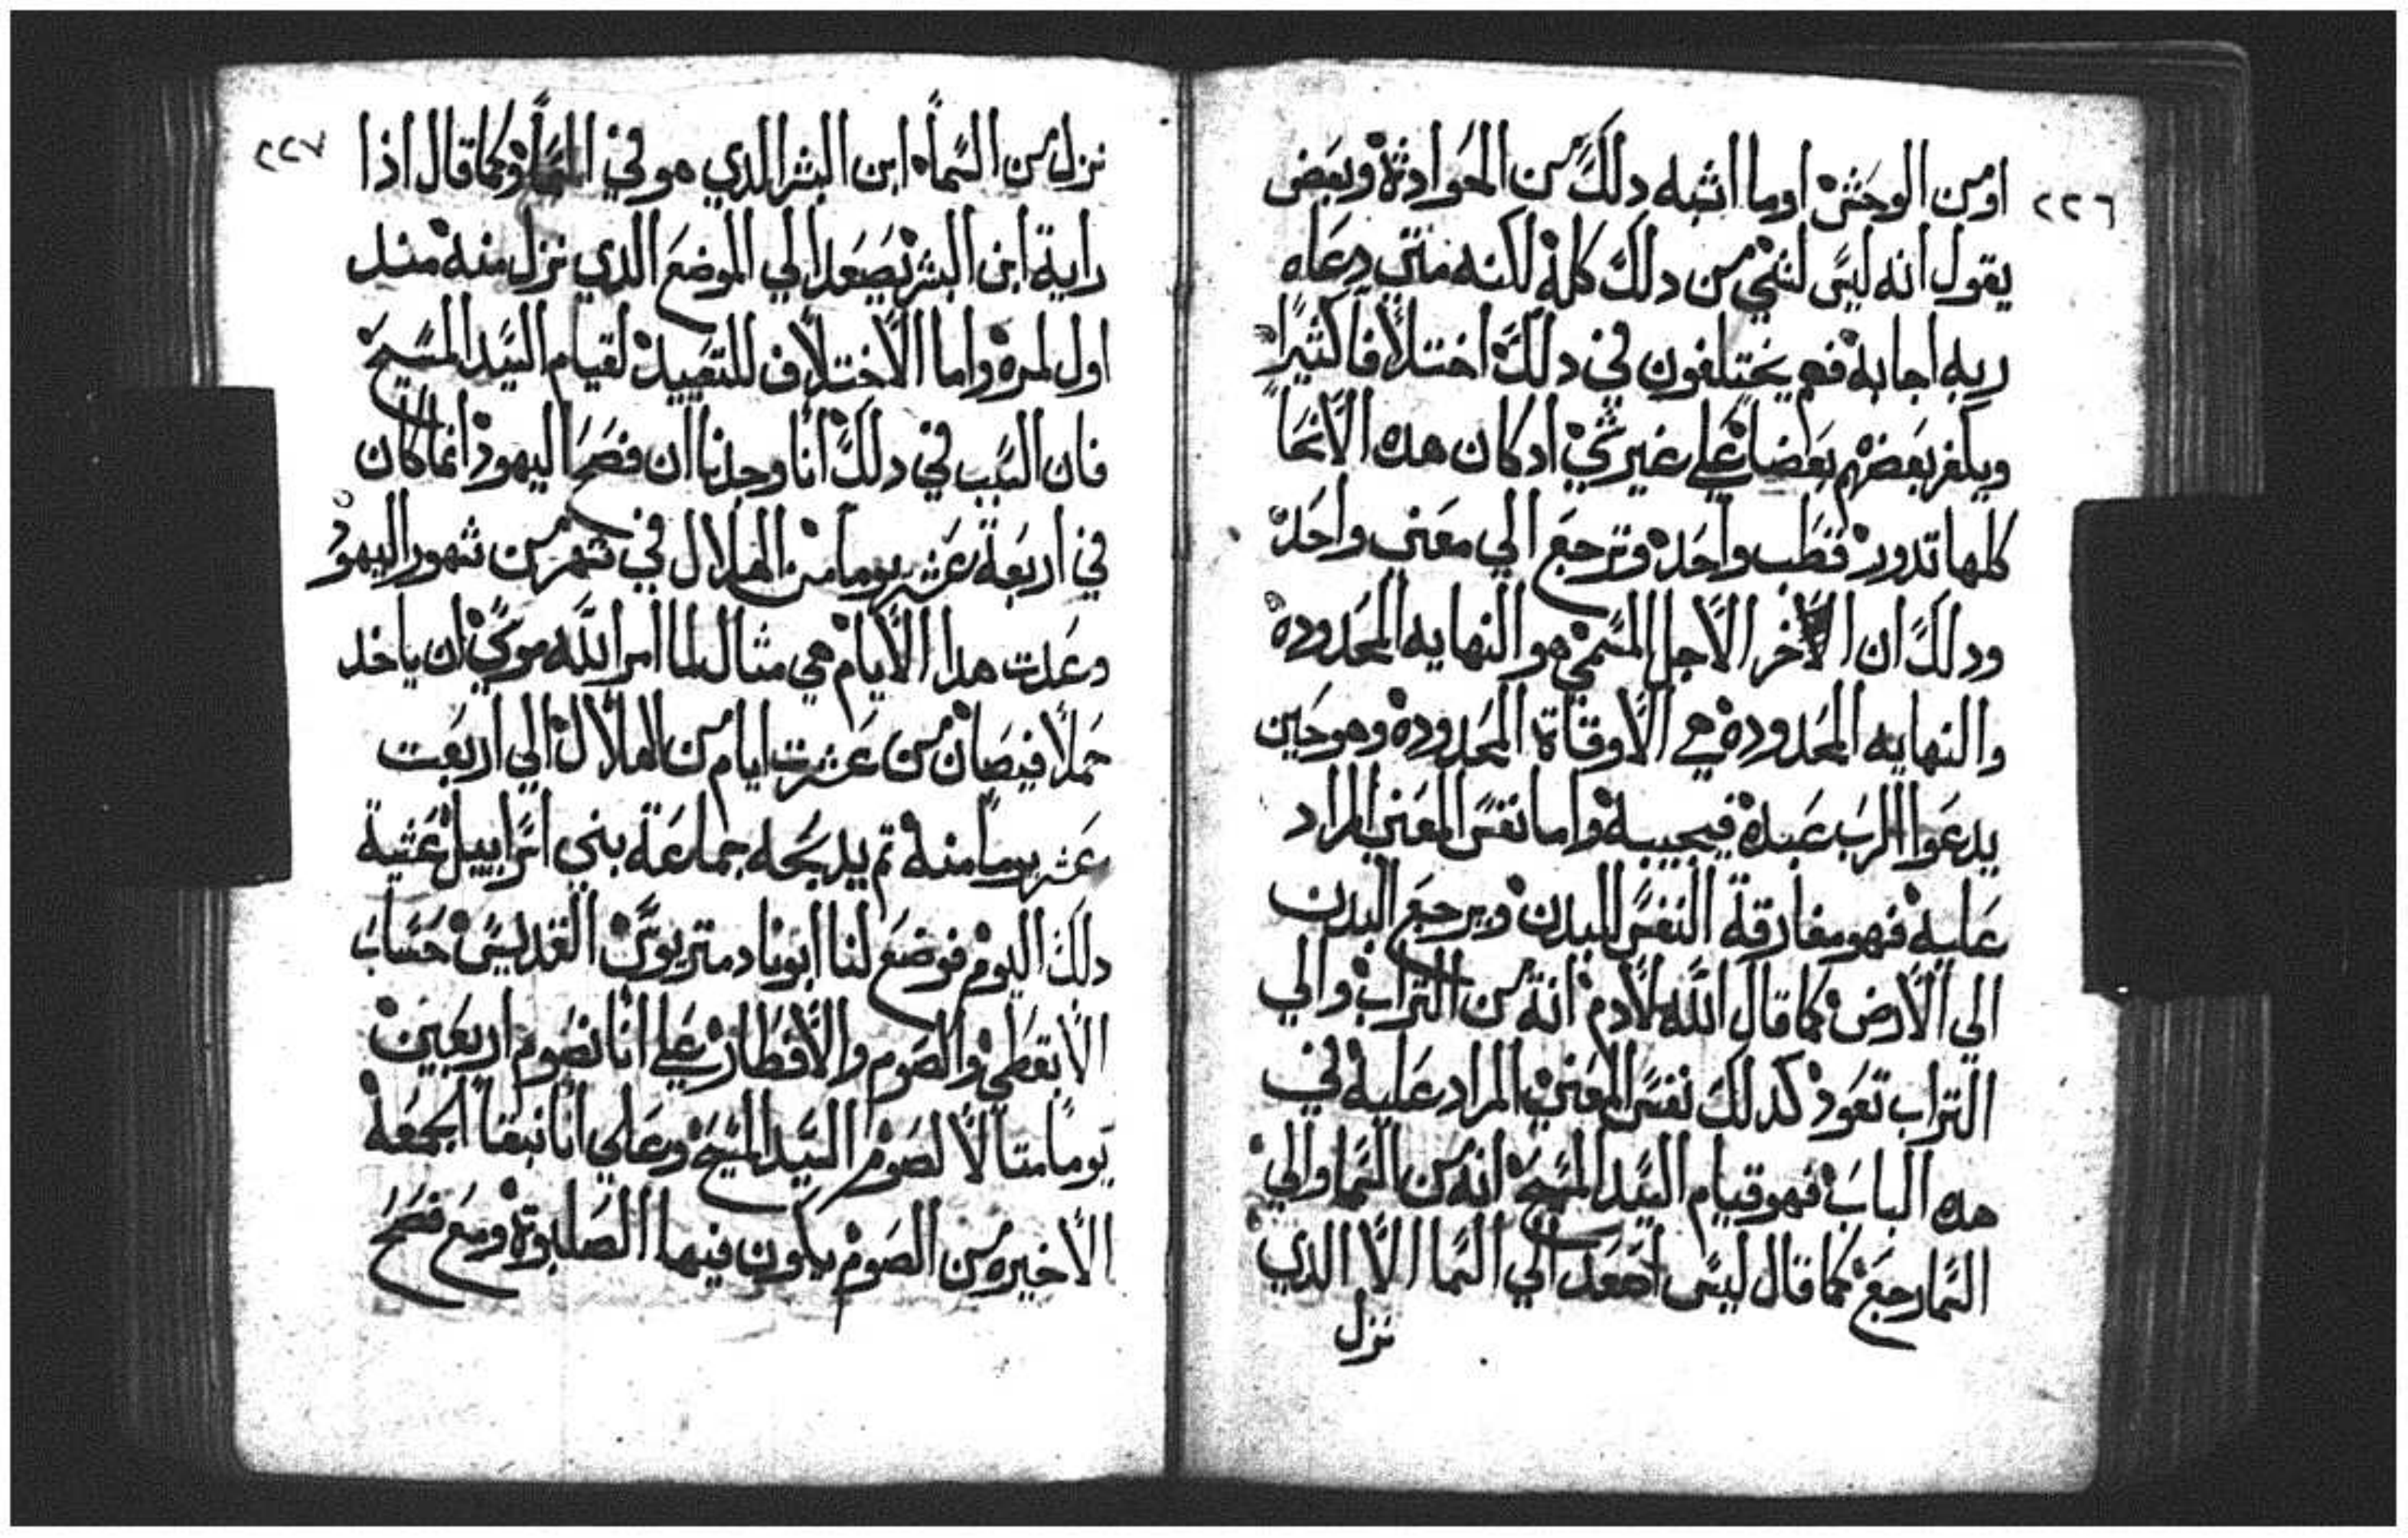 ٢٢٦
اومن الوحش اوما اشبه دلك من الحوادثة وبعض
يقول انه ليس لشي من دلك كله لاكنه متي دعاه
ربه اجابه فهم يختيلفون في دلك اختلافا كثيرا
ويكفر بعضهم بعضا علي غير شي ادكان هده الانحا
كلها تدور قطب واحد وترجع الي معني واحد
ودلك ان الاخر الاجل المسمي هو النهايه المحدوده
والنهايه المحدوده هي الاوقاة المحدودة وهو حين
يدعوا الرب عبده فيجيبه واما نفس المعني المراد
عليه فهو مفارقة النفس للبدن ويرجع البدن
الي الارض كما قال الله لادم انه من التراب والي
التراب تعود كدلك نفس المعني المراد عليه في
هده الباب فهو قيام السيد المسيح انه من السما والي
السما رجع كما قال ليس اصعد الي السما الا الدي
نزل
٢٢٧
نزل من السماه ابن البشر الدي هو في السما وكما قال اذا
راية ابن البشر يصعد الي الموضع الدي نزل منه منل
اول لمرة واما الاختلاف للتعييد لقيام السيد المسيح
فان السبب في دلك انا وجدنا ان فصح اليهود انما كان
في اربعة عشر يوما من الهلال في شهر من شهور اليهود
وعدت هدا الايام هي مثال لما امر الله موسي ان ياخد
حملا فيصان من عشرت ايام من الهلال الي اربعت
عشر يوما منه تم يدبحه جماعة بني اسراييل عشية
دلك اليوم فوضع لنا ابونا دمتريوس القديس حساب
الابقطي والصوم والافطار علي انا نصوم اربعين
يوما متالا لصوم السيد المسيح وعلي انا نبقا الجمعه
الاخيره من الصوم يكون فيها الصلبوة ومع فصح